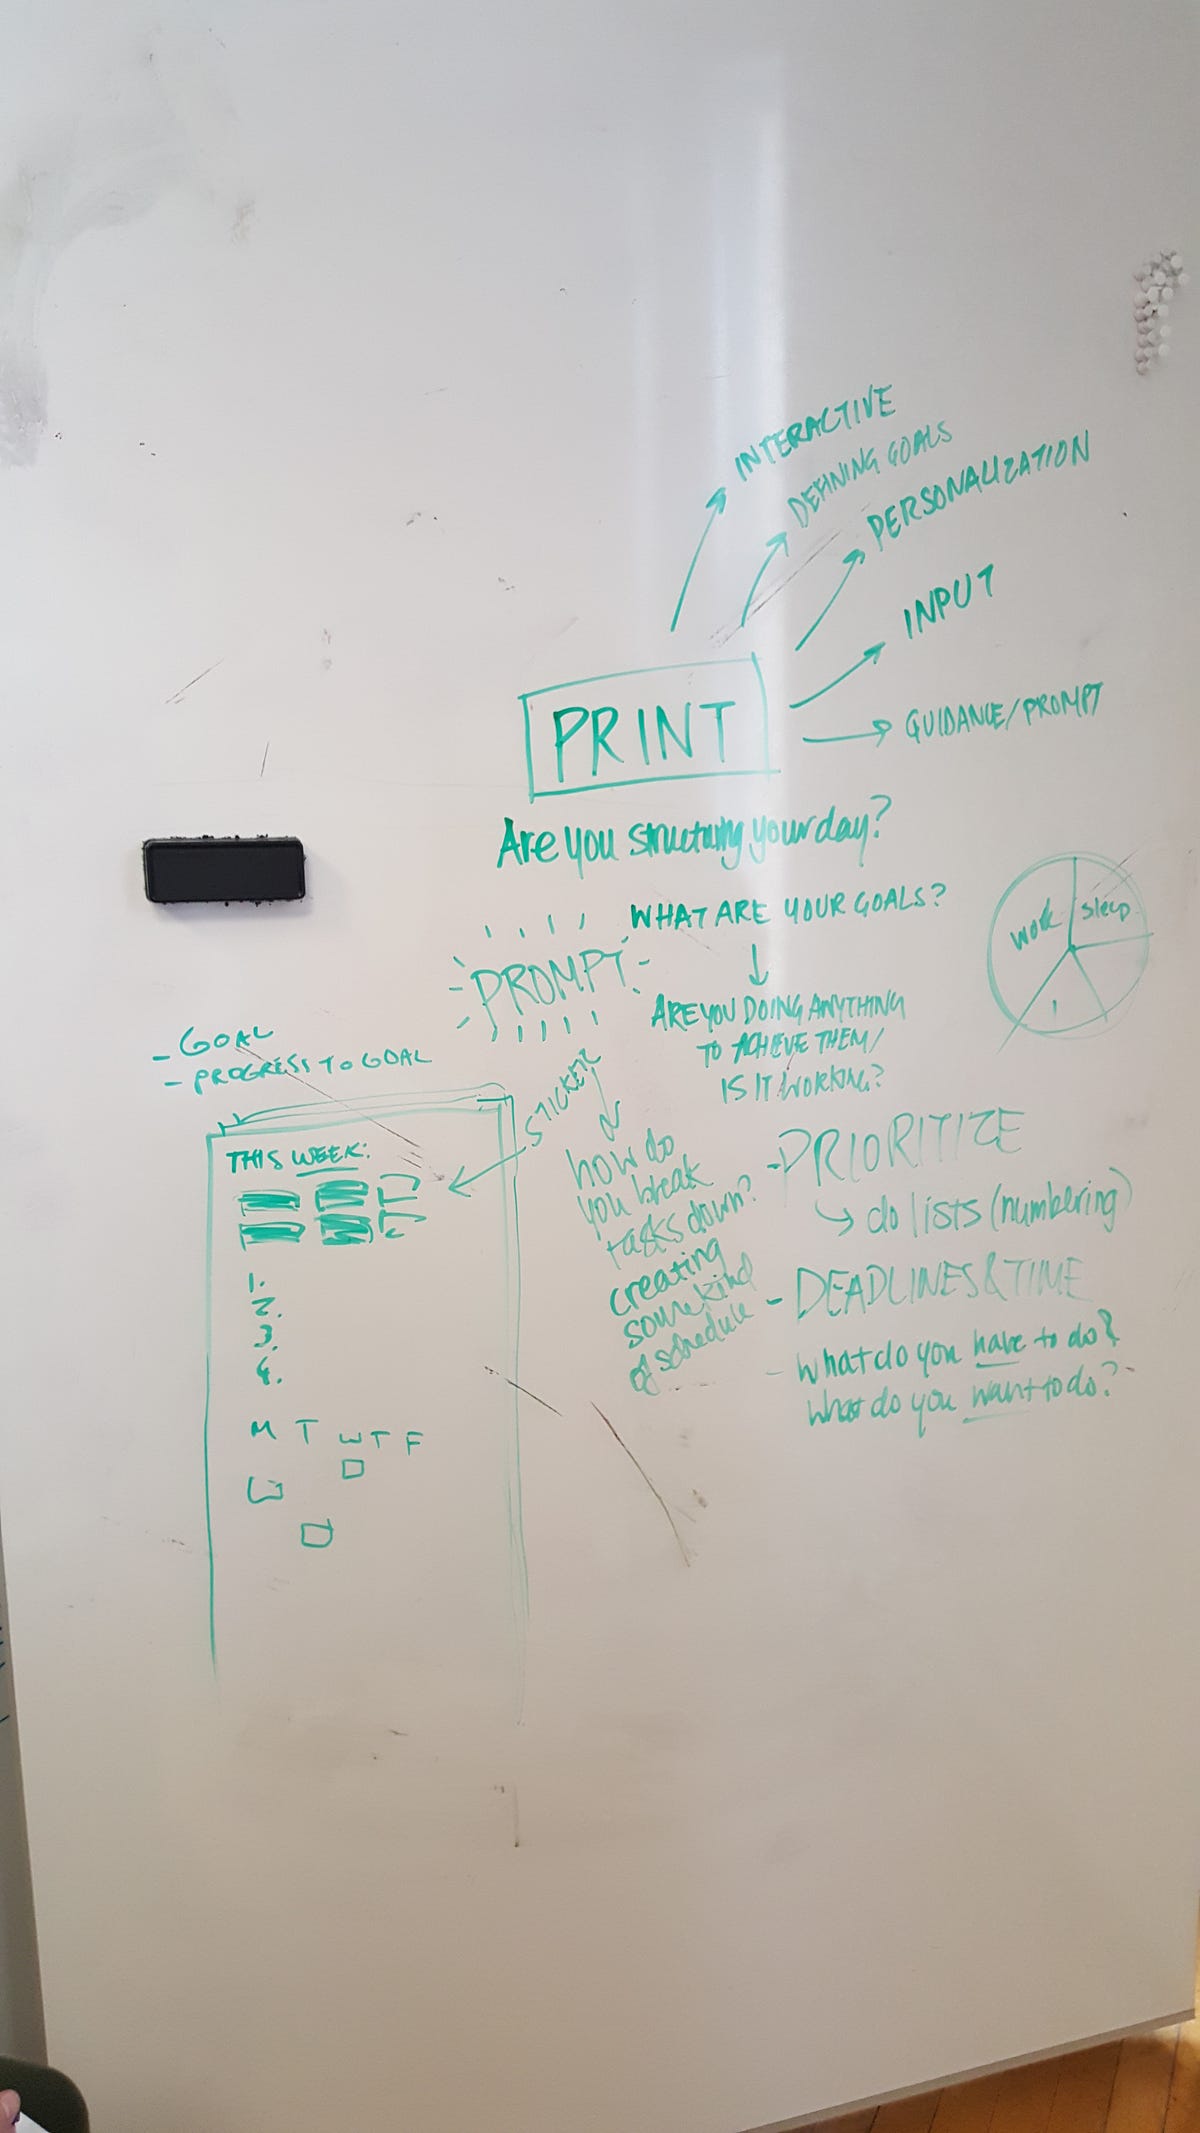 INTERACTIVE
DEFINING GOALS
PERSONALIZATION
INPUT
GUIDANCE/PROMPT
PRINT
Are you structuring your day?
WHAT ARE YOUR GOALS?
work
sleep
PROMPT
ARE YOU DOING ANYTHING
TO ACHIEVE THEM/
IS IT WORKING?
- GOAL
- PROGRESS TO GOAL
STICKER
THIS WEEK:
1.
2.
3.
4.
M T W T F
how do
you break
tasks down?
creating
some kind
of schedule
- PRIORITIZE
do lists (numbering)
- DEADLINES & TIME
- What do you have to do?
What do you want to do?